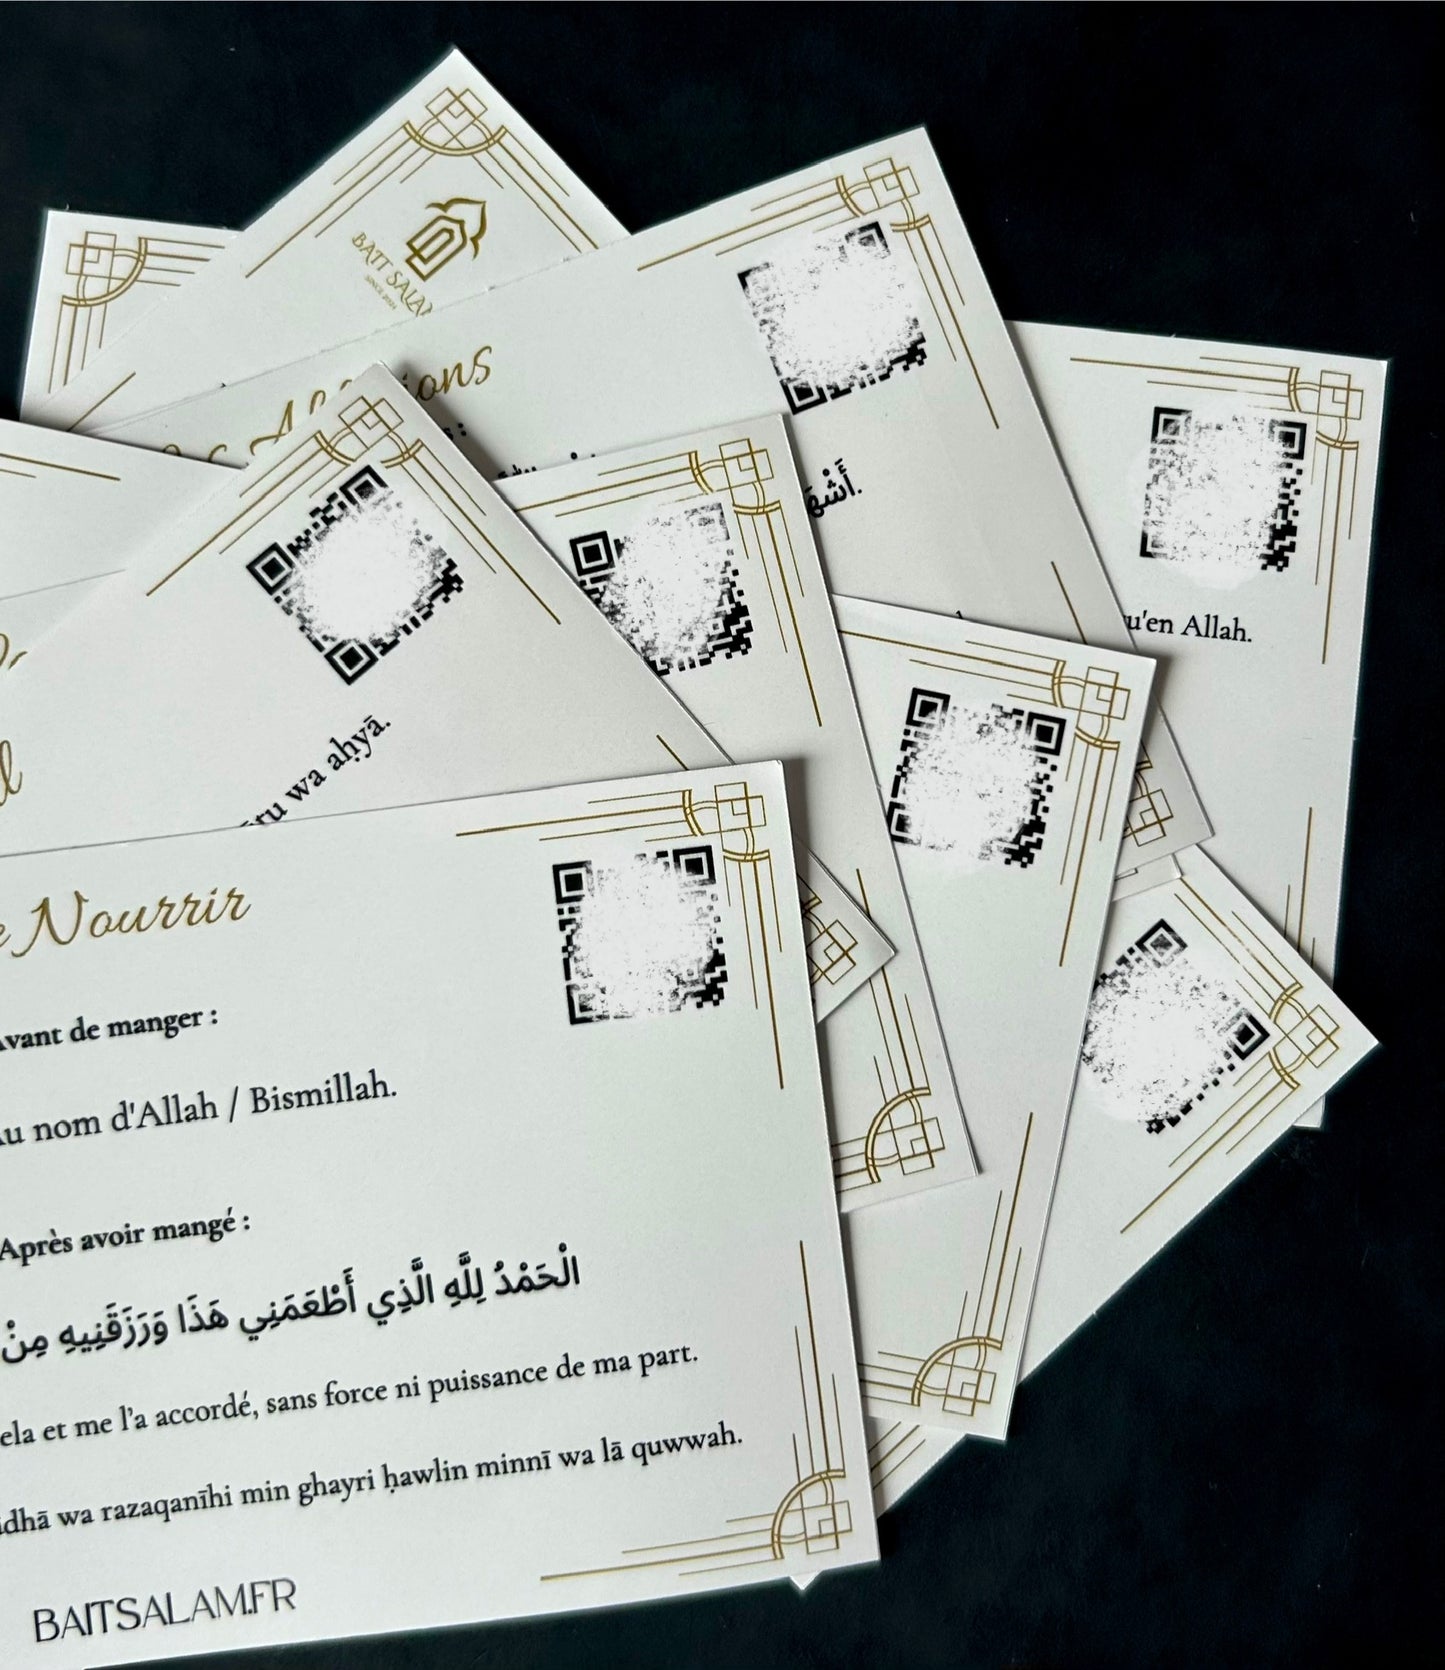 BAIT SALAM
SINCE 2024
أَشْهَ
u'en Allah.
wa aḥyā.
Nourrir
vant de manger :
u nom d'Allah / Bismillah.
Après avoir mangé :
الْحَمْدُ لِلَّهِ الَّذِي أَطْعَمَنِي هَذَا وَرَزَقَنِيهِ مِنْ
ela et me l'a accordé, sans force ni puissance de ma part.
dhā wa razaqanīhi min ghayri ḥawlin minnī wa lā quwwah.
BAITSALAM.FR